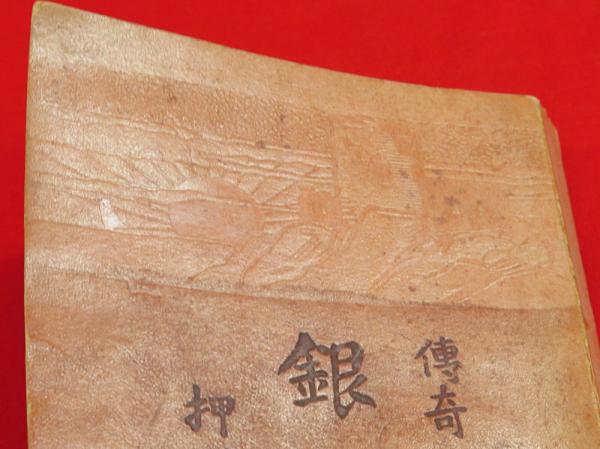 傳奇
銀
押